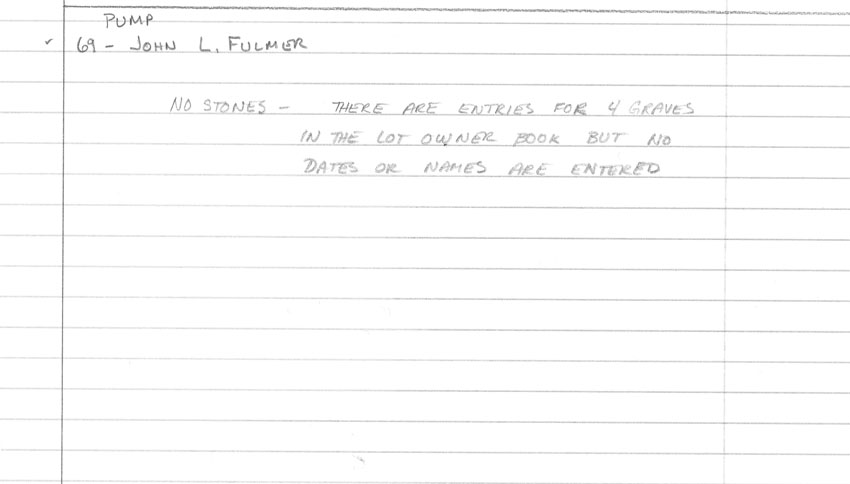 PUMP
✓ 69 - JOHN L. FULMER
NO STONES - THERE ARE ENTRIES FOR 4 GRAVES
IN THE LOT OWNER BOOK BUT NO
DATES OR NAMES ARE ENTERED